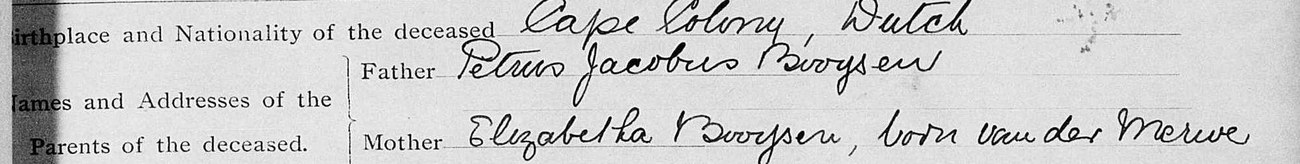 irthplace and Nationality of the deceased Cape Colony, Dutch
Father Petrus Jacobus Booysen
ames and Addresses of the
Parents of the deceased.
Mother Elizabetha Booysen, born van der Merwe